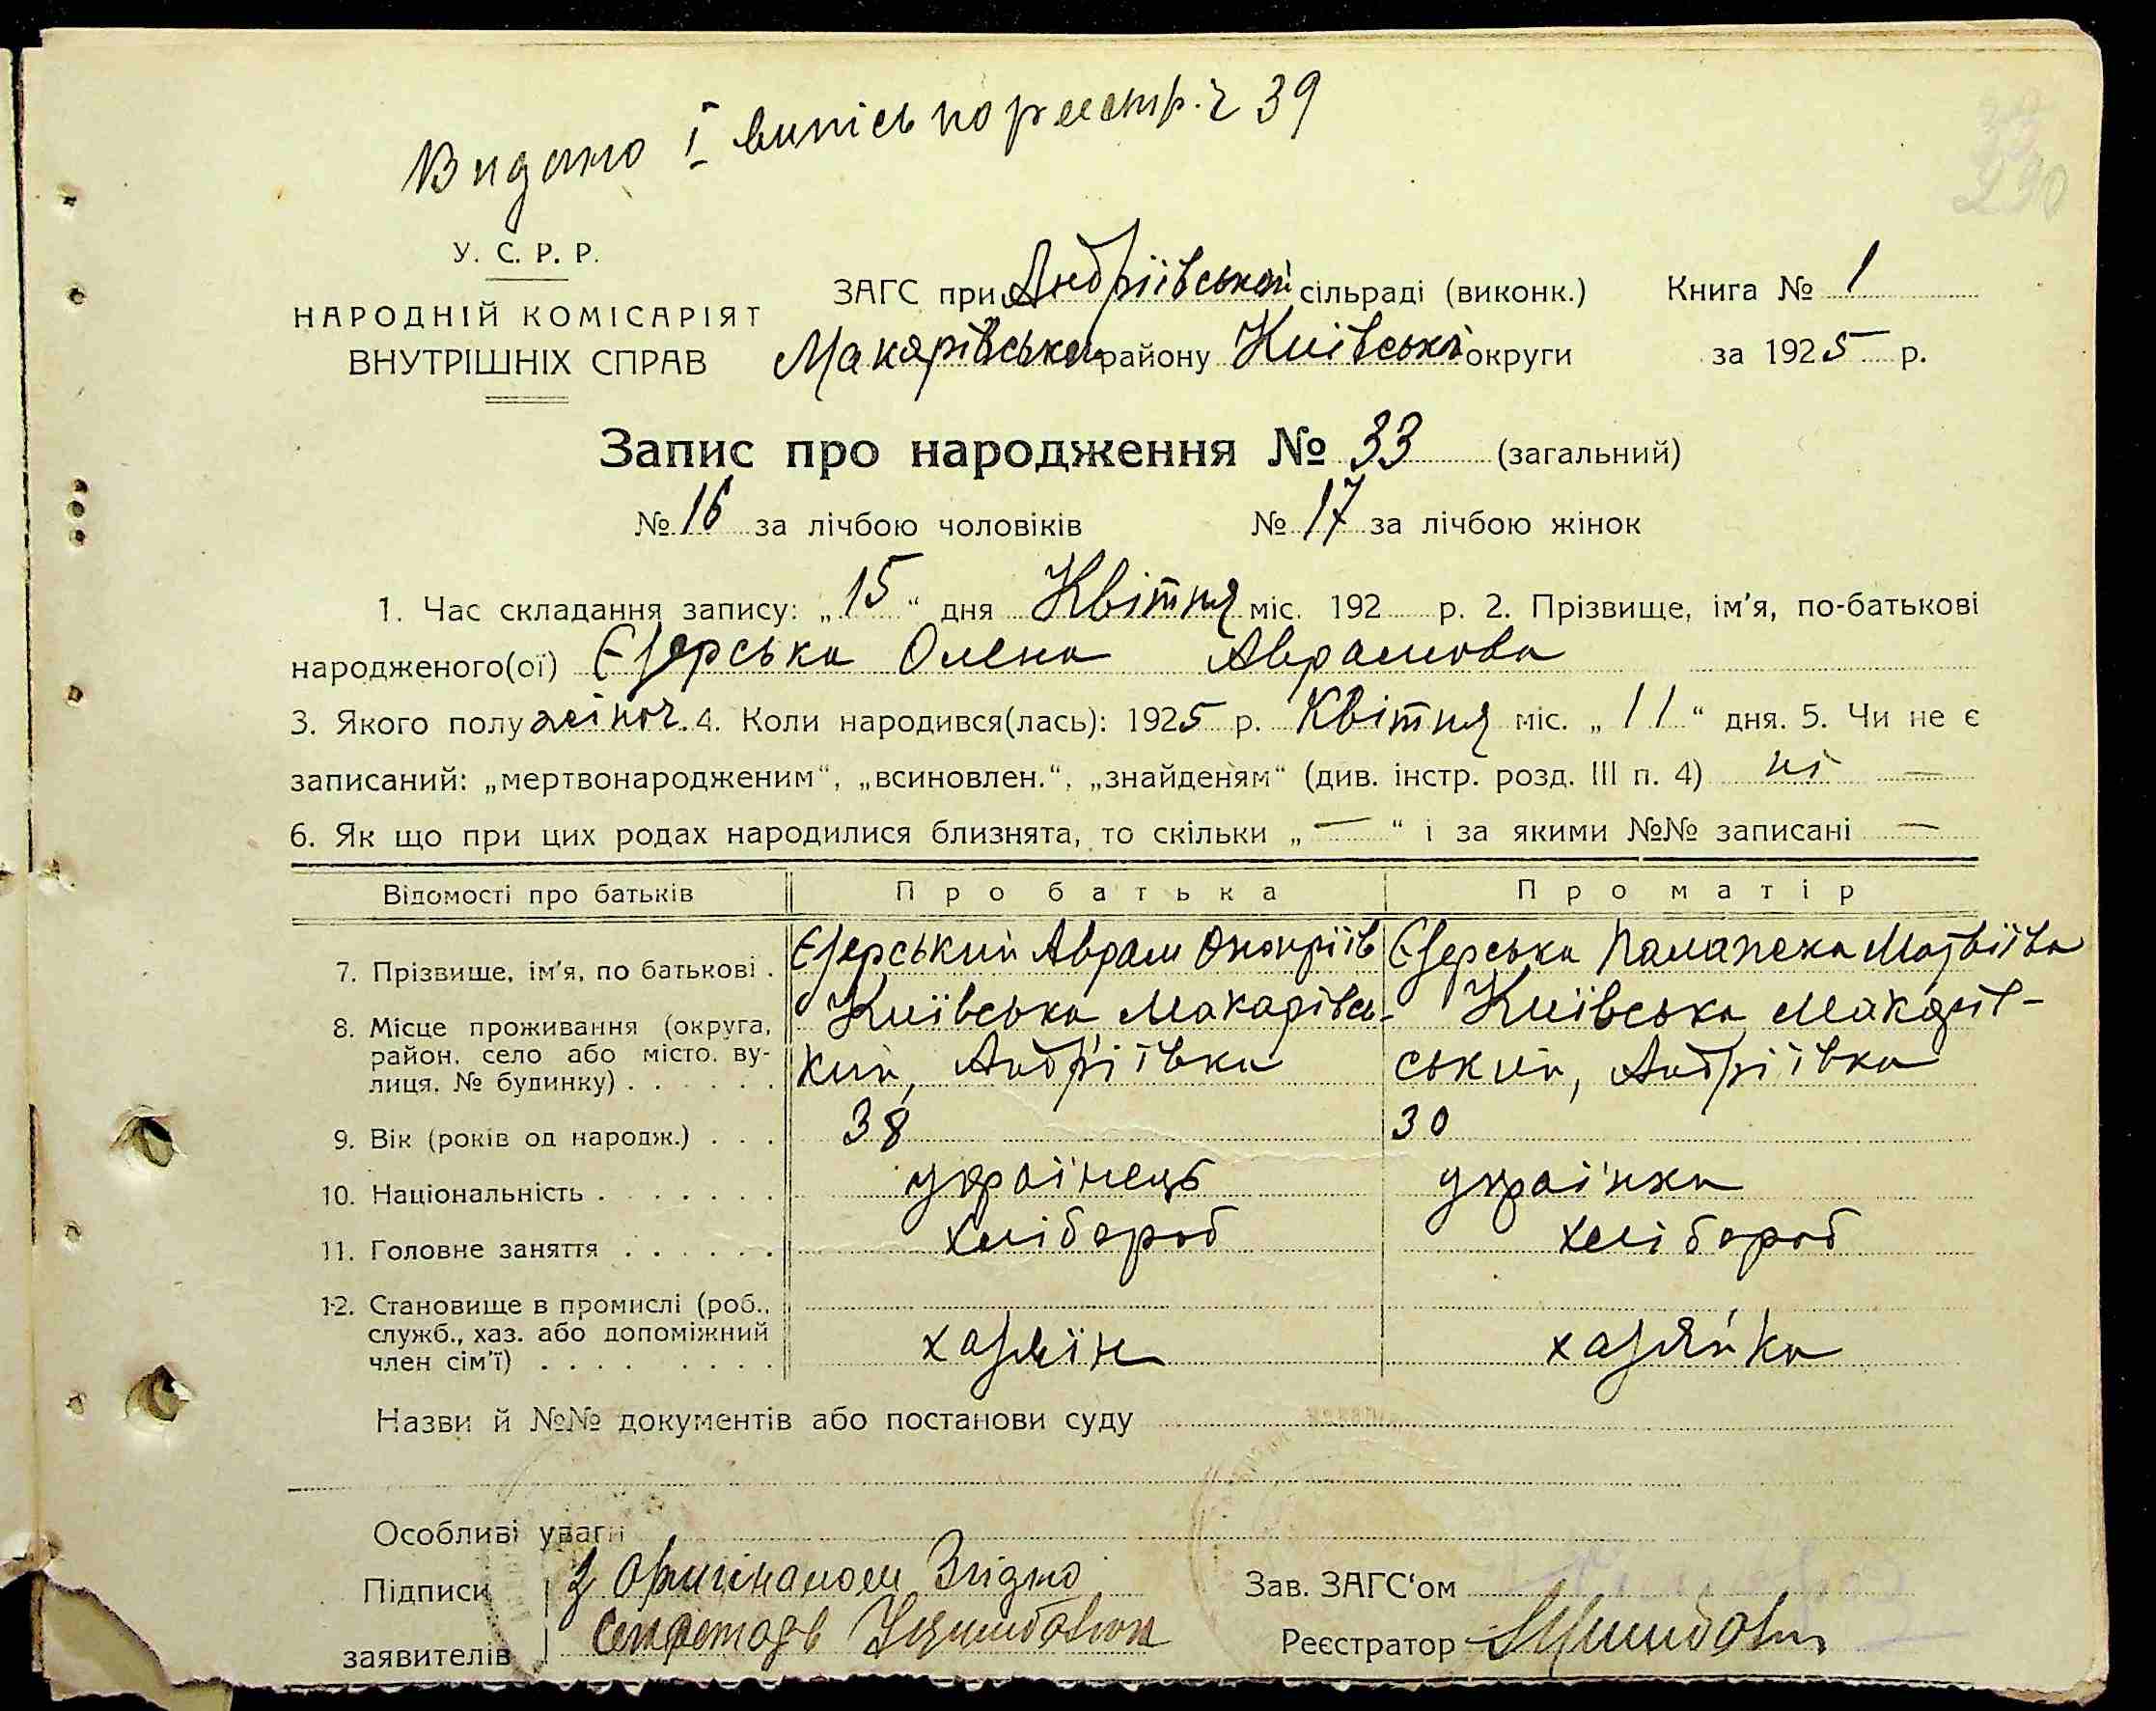 Видано І випись по реестр. ч 39
290
У. С. Р. Р.
НАРОДНІЙ КОМІСАРІЯТ
ВНУТРІШНІХ СПРАВ
ЗАГС при Андріївській сільраді (виконк.) Книга № 1
Макарівського району Київської округи за 1925 р.
Запис про народження № 33 (загальний)
№ 16 за лічбою чоловіків № 17 за лічбою жінок
1. Час складання запису: „15“ дня Квітня міс. 192 р. 2. Прізвище, ім'я, по-батькові
народженого(ої) Єзерська Олена Аврамова
3. Якого полу жіноч. 4. Коли народився(лась): 1925 р. Квітня міс. „11“ дня. 5. Чи не є
записаний: „мертвонародженим“, „всиновлен.“, „знайденям“ (див. інстр. розд. III п. 4) ні —
6. Як що при цих родах народилися близнята, то скільки „—“ і за якими №№ записані —
Відомості про батьків Про батька Про матір
7. Прізвище, ім'я, по батькові . Єзерський Аврам Онопріїв Єзерська Палажка Матвіїва
8. Місце проживання (округа, Київська, Макарівсь- Київська, Макарів-
район. село або місто. ву- кий, Андріївка ський, Андріївка
лиця. № будинку) . . . . . .
9. Вік (років од народж.) . . . 38 30
10. Національність . . . . . . . українець українка
11. Головне заняття . . . . . . хлібороб хлібороб
12. Становище в промислі (роб.,
служб., хаз. або допоміжний хазяїн хазяйка
член сім'ї) . . . . . . . .
Назви й №№ документів або постанови суду
Особливі уваги
Підписи З оригіналом Згідно Зав. ЗАГС'ом
заявителів Секретарь Реєстратор